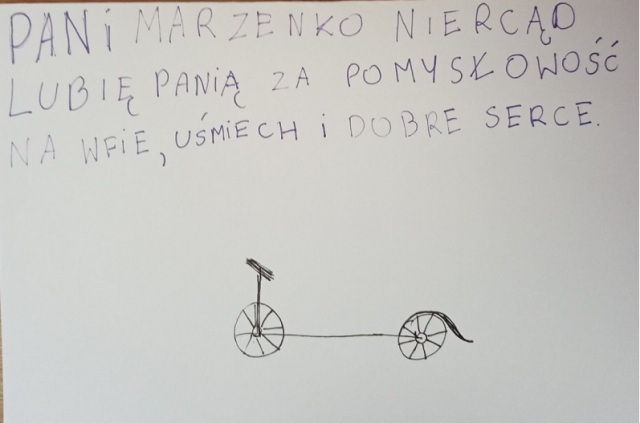 PANi MARZENKO NIERCĄD
LUBIĘ PANIĄ ZA POMYSŁOWOŚĆ
NA WFiE, UŚMiECH i DOBRE SERCE.